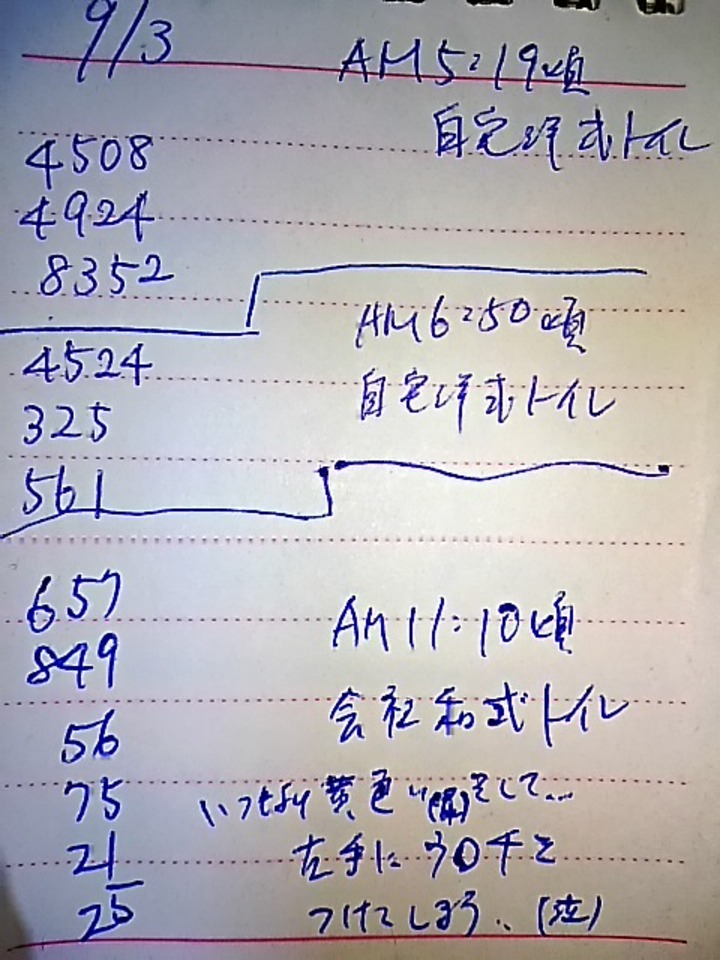 9/3
AM5:19頃
自宅洋式トイレ
4508
4924
8352
AM6:50頃
自宅洋式トイレ
4524
325
561
657
AM11:10頃
849
会社和式トイレ
56
75
いつもより黄色い(尿)をして…
21
左手にウ〇チを
25
つけてしまう、、(泣)